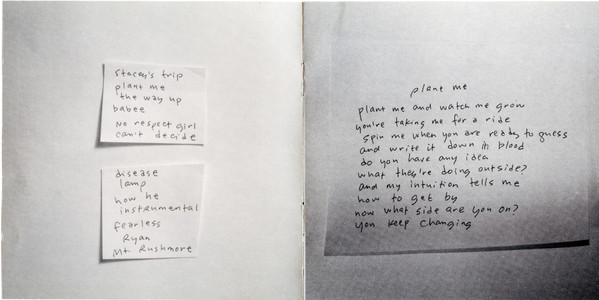 stacey's trip
plant me
the way up
babee
no respect girl
can't decide
disease
lamp
how he
instrumental
fearless
Ryan
Mt. Rushmore
plant me
plant me and watch me grow
you're taking me for a ride
spin me when you are ready to guess
and write it down in blood
do you have any idea
what they're doing outside?
and my intuition tells me
how to get by
now what side are you on?
you keep changing